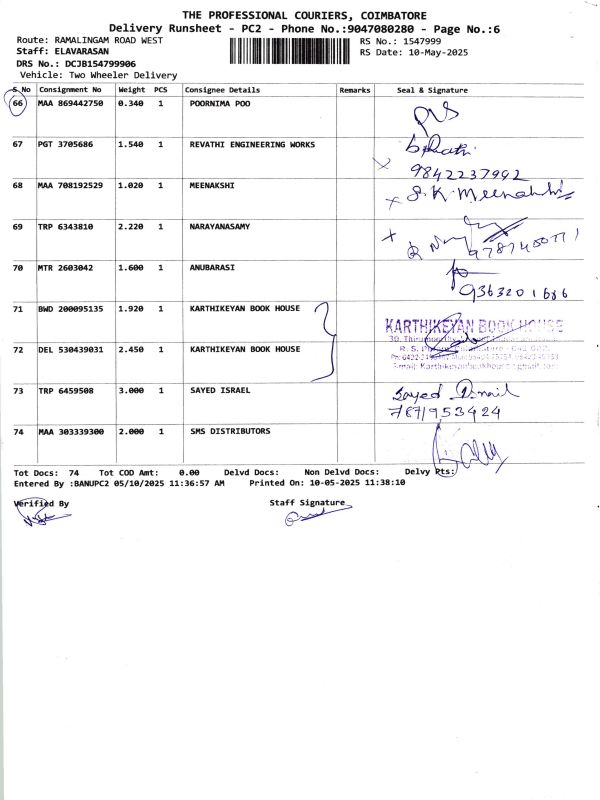 THE PROFESSIONAL COURIERS, COIMBATORE
Delivery Runsheet - PC2 - Phone No.:9047080280 - Page No.:6
Route: RAMALINGAM ROAD WEST RS No.: 1547999
Staff: ELAVARASAN RS Date: 10-May-2025
DRS No.: DCJB154799906
Vehicle: Two Wheeler Delivery
S No Consignment No Weight PCS Consignee Details Remarks Seal & Signature
66 MAA 869442750 0.340 1 POORNIMA POO
67 PGT 3705686 1.540 1 REVATHI ENGINEERING WORKS
9842237992
68 MAA 708192529 1.020 1 MEENAKSHI S.K. Meenakshi
69 TRP 6343810 2.220 1 NARAYANASAMY
70 MTR 2603042 1.600 1 ANUBARASI
9363201686
71 BWD 200095135 1.920 1 KARTHIKEYAN BOOK HOUSE
KARTHIKEYAN BOOK HOUSE
72 DEL 530439031 2.450 1 KARTHIKEYAN BOOK HOUSE
73 TRP 6459508 3.000 1 SAYED ISRAEL Sayed
7871953424
74 MAA 303339300 2.000 1 SMS DISTRIBUTORS
Tot Docs: 74 Tot COD Amt: 0.00 Delvd Docs: Non Delvd Docs: Delvy Pts:
Entered By :BANUPC2 05/10/2025 11:36:57 AM Printed On: 10-05-2025 11:38:10
Verified By Staff Signature